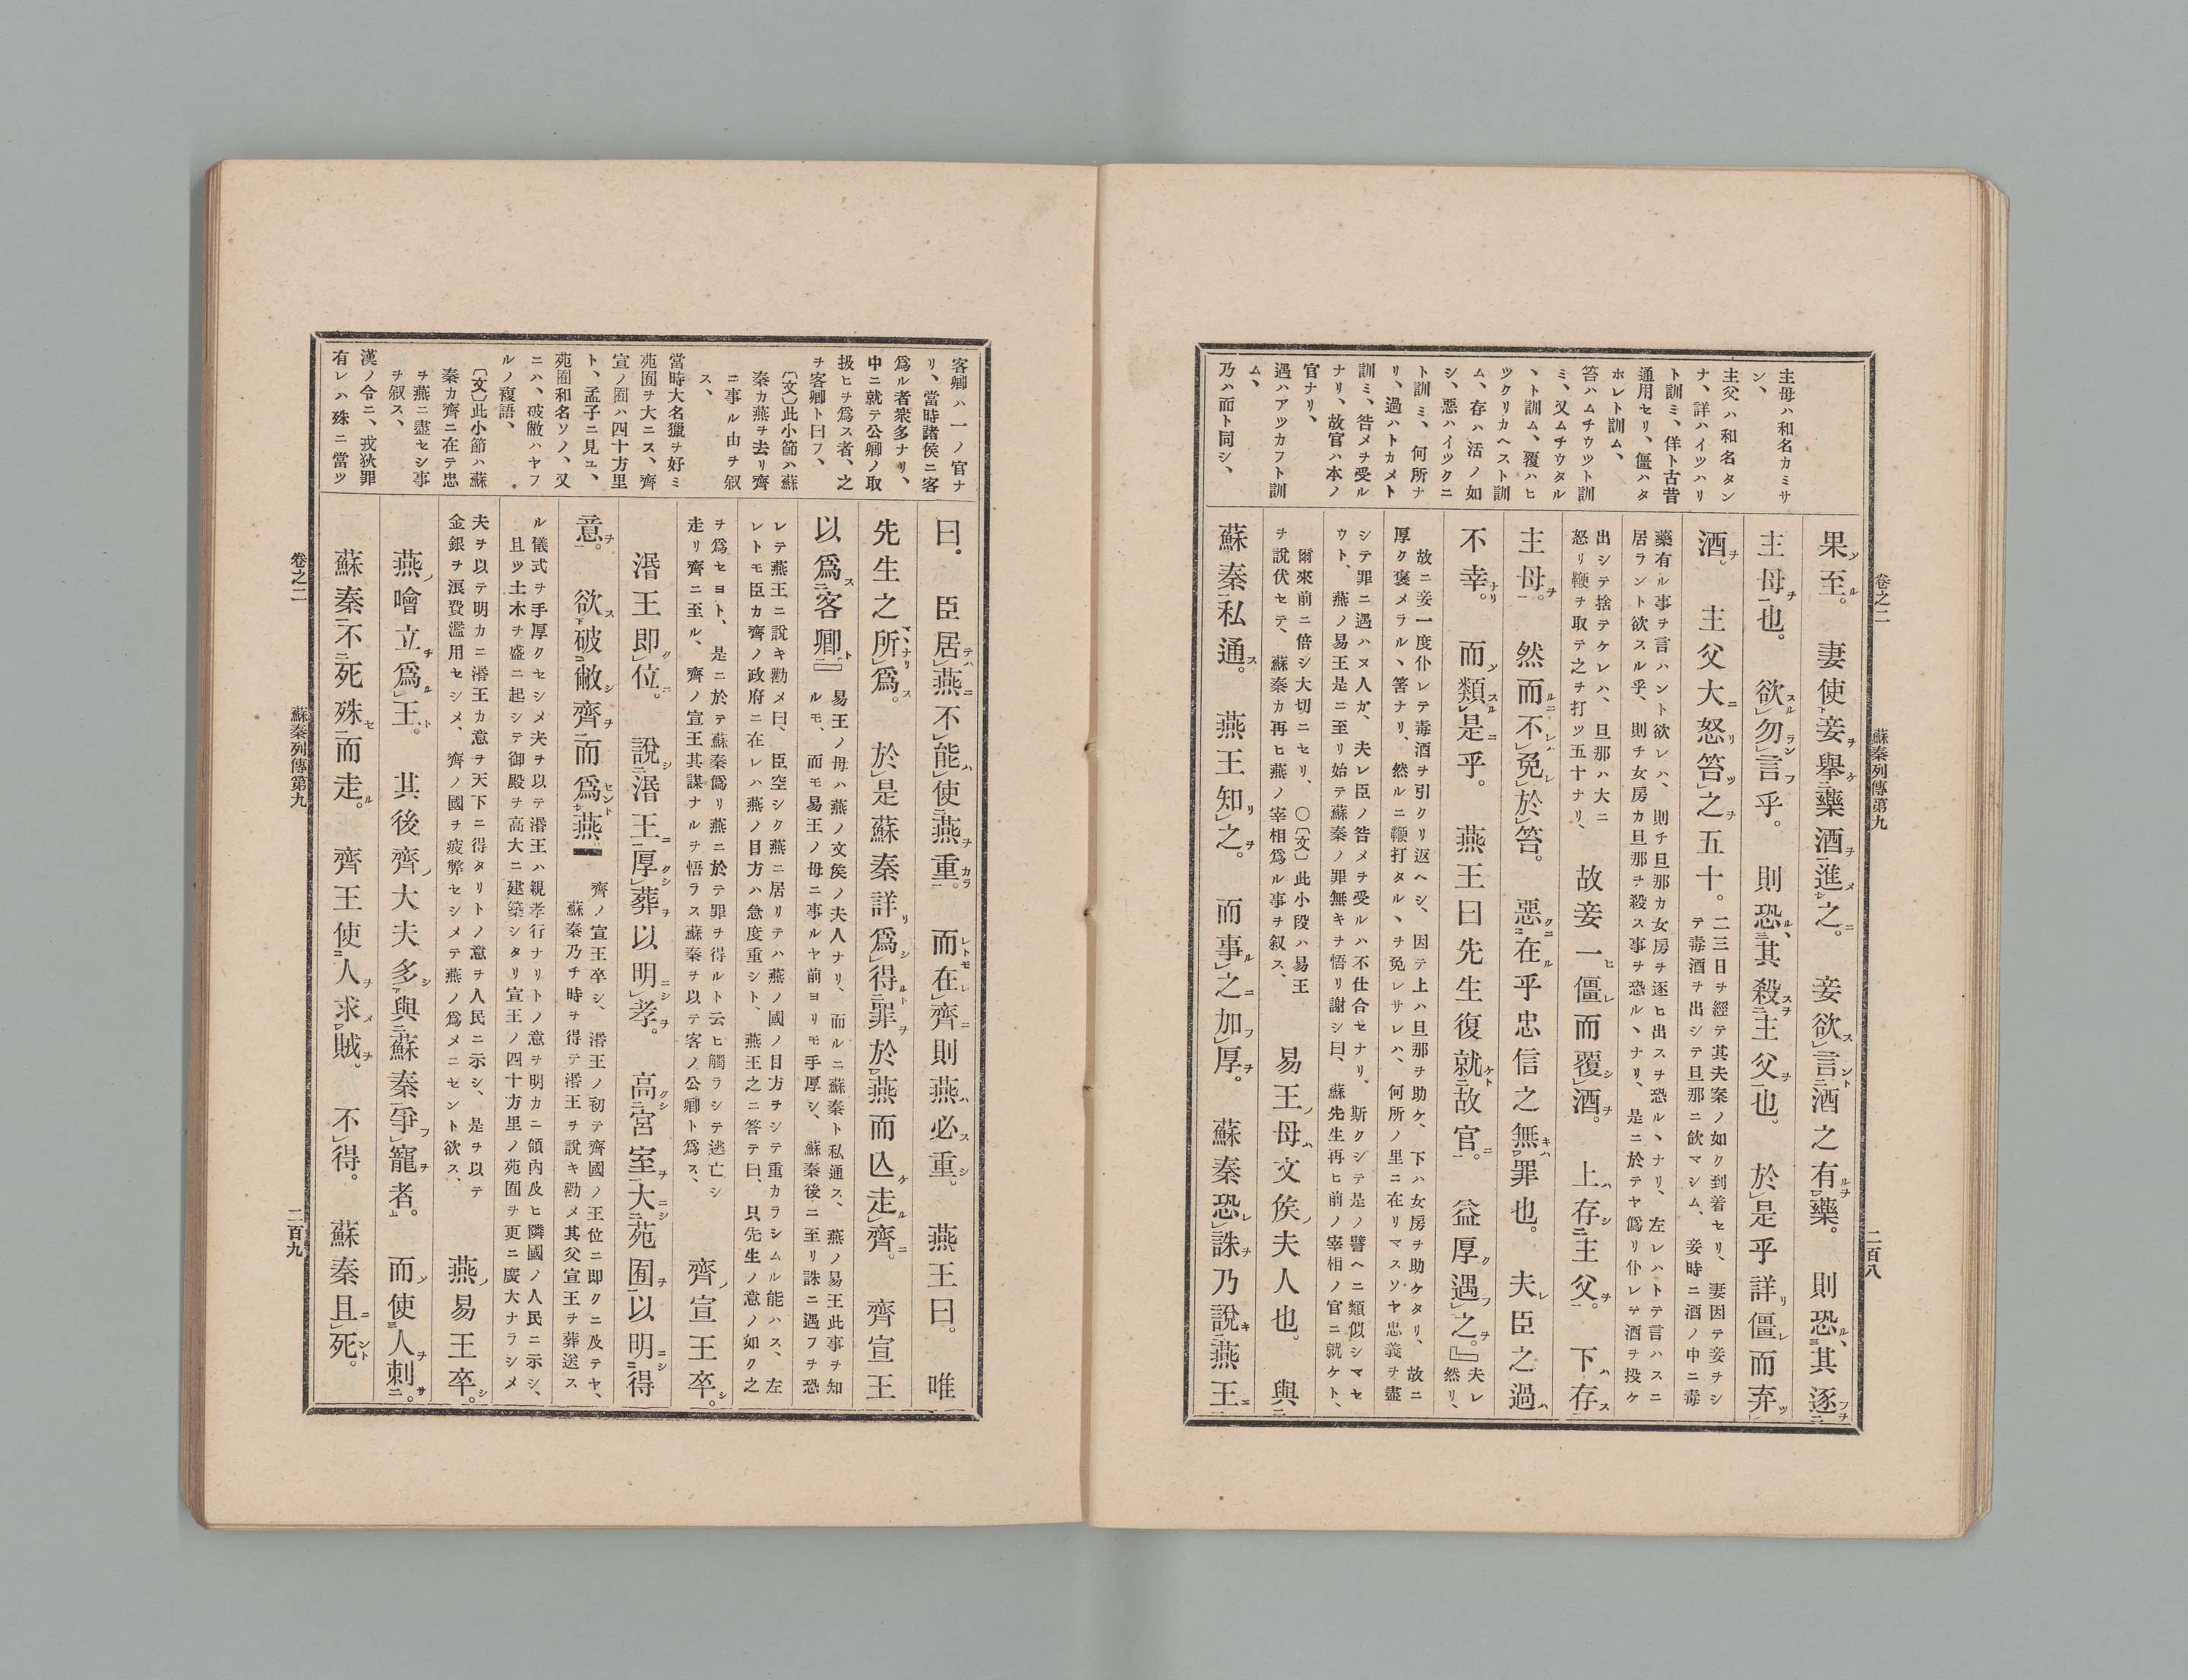 卷之二
蘇秦列傳第九
二百八
主母ハ和名カミサ
ン、
主父ハ和名タン
ナ、詳ハイツハリ
ト訓ミ、佯ト古昔
通用セリ、僵ハタ
ホレト訓ム、
笞ハムチウツト訓
ミ、又ムチウタル
ヽト訓ム、覆ハヒ
ツクリカヘスト訓
ム、存ハ活ノ如
シ、惡ハイツクニ
ト訓ミ、何所ナ
リ、過ハトカメト
訓ミ、咎メヲ受ル
ナリ、故官ハ本ノ
官ナリ、
遇ハアツカフト訓
ム、
乃ハ而ト同シ、
果至。妻使妾擧藥酒進之。妾欲言酒之有藥。則恐其逐
主母也。欲勿言乎。則恐其殺主父也。於是乎詳僵而弃
酒。主父大怒笞之五十。
二三日ヲ經テ其夫案ノ如ク到着セリ、妻因テ妾ヲシ
テ毒酒ヲ出シテ旦那ニ飮マシム、妾時ニ酒ノ中ニ毒
藥有ル事ヲ言ハント欲レハ、則チ旦那カ女房ヲ逐ヒ出スヲ恐ルヽナリ、左レハトテ言ハスニ
居ラント欲スル乎、則チ女房カ旦那ヲ殺ス事ヲ恐ルヽナリ、是ニ於テヤ僞リ仆レテ酒ヲ投ケ
出シテ捨テケレハ、旦那ハ大ニ
怒リ鞭ヲ取テ之ヲ打ツ五十ナリ、
故妾一僵而覆酒。上存主父。下存
主母。然而不免於笞。惡在乎忠信之無罪也。夫臣之過
不幸。而類是乎。燕王曰先生復就故官。益厚遇之。』
夫レ
然リ、
故ニ妾一度仆レテ毒酒ヲ引クリ返ヘシ、因テ上ハ旦那ヲ助ケ、下ハ女房ヲ助ケタリ、故ニ
厚ク褒メラルヽ筈ナリ、然ルニ鞭打タルヽヲ免レサレハ、何所ノ里ニ在リマスソヤ忠義ヲ盡
シテ罪ニ遇ハヌ人ガ、夫レ臣ノ咎メヲ受ルハ不仕合セナリ、斯クシテ是ノ譬ヘニ類似シマセ
ウト、燕ノ易王是ニ至リ始テ蘇秦ノ罪無キヲ悟リ謝シ曰、蘇先生再ヒ前ノ宰相ノ官ニ就ケト、
爾來前ニ倍シ大切ニセリ、〇〔文〕此小段ハ易王
ヲ説伏セテ、蘇秦カ再ヒ燕ノ宰相爲ル事ヲ叙ス、
易王母文侯夫人也。與
蘇秦私通。燕王知之。而事之加厚。蘇秦恐誅乃說燕王
客卿ハ一ノ官ナ
リ、當時諸侯ニ客
爲ル者衆多ナリ、
中ニ就テ公卿ノ取
扱ヒヲ爲ス者、之
ヲ客卿ト曰フ、
〔文〕此小節ハ蘇
秦カ燕ヲ去リ齊
ニ事ル由ヲ叙
ス、
當時大名獵ヲ好ミ
苑囿ヲ大ニス、齊
宣ノ囿ハ四十方里
ト、孟子ニ見ユ、
苑囿和名ソノ、又
ニハ、破敝ハヤフ
ルノ複語、
〔文〕此小節ハ蘇
秦カ齊ニ在テ忠
ヲ燕ニ盡セシ事
ヲ叙ス、
漢ノ令ニ、戎狄罪
有レハ殊ニ當ツ
曰。臣居燕不能使燕重。而在齊則燕必重。燕王曰。唯
先生之所爲。於是蘇秦詳爲得罪於燕而亾走齊。齊宣王
以爲客卿。
易王ノ母ハ燕ノ文侯ノ夫人ナリ、而ルニ蘇秦ト私通ス、燕ノ易王此事ヲ知
ルモ、而モ易王ノ母ニ事ルヤ前ヨリモ手厚シ、蘇秦後ニ至リ誅ニ遇フヲ恐
レテ燕王ニ說キ勸メ曰、臣空シク燕ニ居リテハ燕ノ國ノ目方ヲシテ重カラシムル能ハス、左
レトモ臣カ齊ノ政府ニ在レハ燕ノ目方ハ急度重シト、燕王之ニ答テ曰、只先生ノ意ノ如ク之
ヲ爲セヨト、是ニ於テ蘇秦僞リ燕ニ於テ罪ヲ得ルト云ヒ觸ラシテ逃亡シ
走リ齊ニ至ル、齊ノ宣王其謀ナルヲ悟ラス蘇秦ヲ以テ客ノ公卿ト爲ス、
齊宣王卒。
湣王即位。說湣王厚葬以明孝。高宮室大苑囿以明得
意。欲破敝齊而爲燕
齊ノ宣王卒シ、湣王ノ初テ齊國ノ王位ニ即クニ及テヤ、
蘇秦乃チ時ヲ得テ湣王ヲ說キ勸メ其父宣王ヲ葬送ス
ル儀式ヲ手厚クセシメ夫ヲ以テ湣王ハ親孝行ナリトノ意ヲ明カニ領內及ヒ隣國ノ人民ニ示シ、
且ツ土木ヲ盛ニ起シテ御殿ヲ高大ニ建築シタリ宣王ノ四十方里ノ苑囿ヲ更ニ廣大ナラシメ
夫ヲ以テ明カニ湣王カ意ヲ天下ニ得タリトノ意ヲ人民ニ示シ、是ヲ以テ
金銀ヲ浪費濫用セシメ、齊ノ國ヲ疲弊セシメテ燕ノ爲メニセント欲ス、
燕易王卒。
燕噲立爲王。其後齊大夫多與蘇秦爭寵者。而使人刺
蘇秦不死殊而走。齊王使人求賊。不得。蘇秦且死。
卷之二
蘇秦列傳第九
二百九